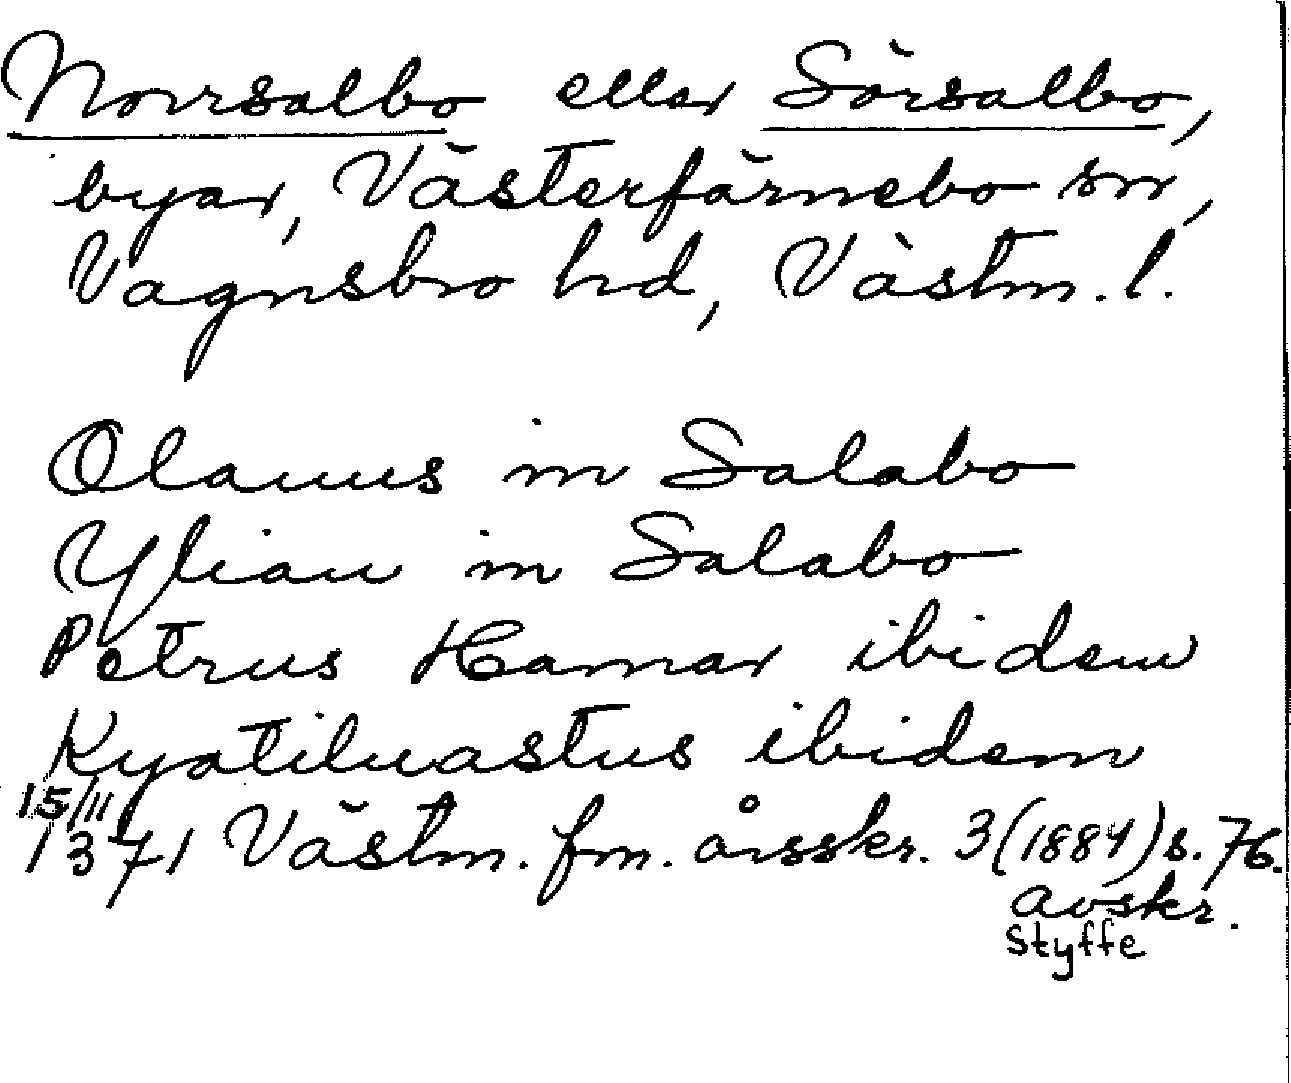 Norrsalbo eller Sörsalbo,
byar, Västerfärnebo sn,
Vagnsbro hd, Västm. l.
Olauus in Salabo
Yliau in Salabo
Petrus Hamar ibidem
Kyatiluastus ibidem
15/11
1371 Västm. fm. årsskr. 3 (1884) s. 76.
avskr.
Styffe